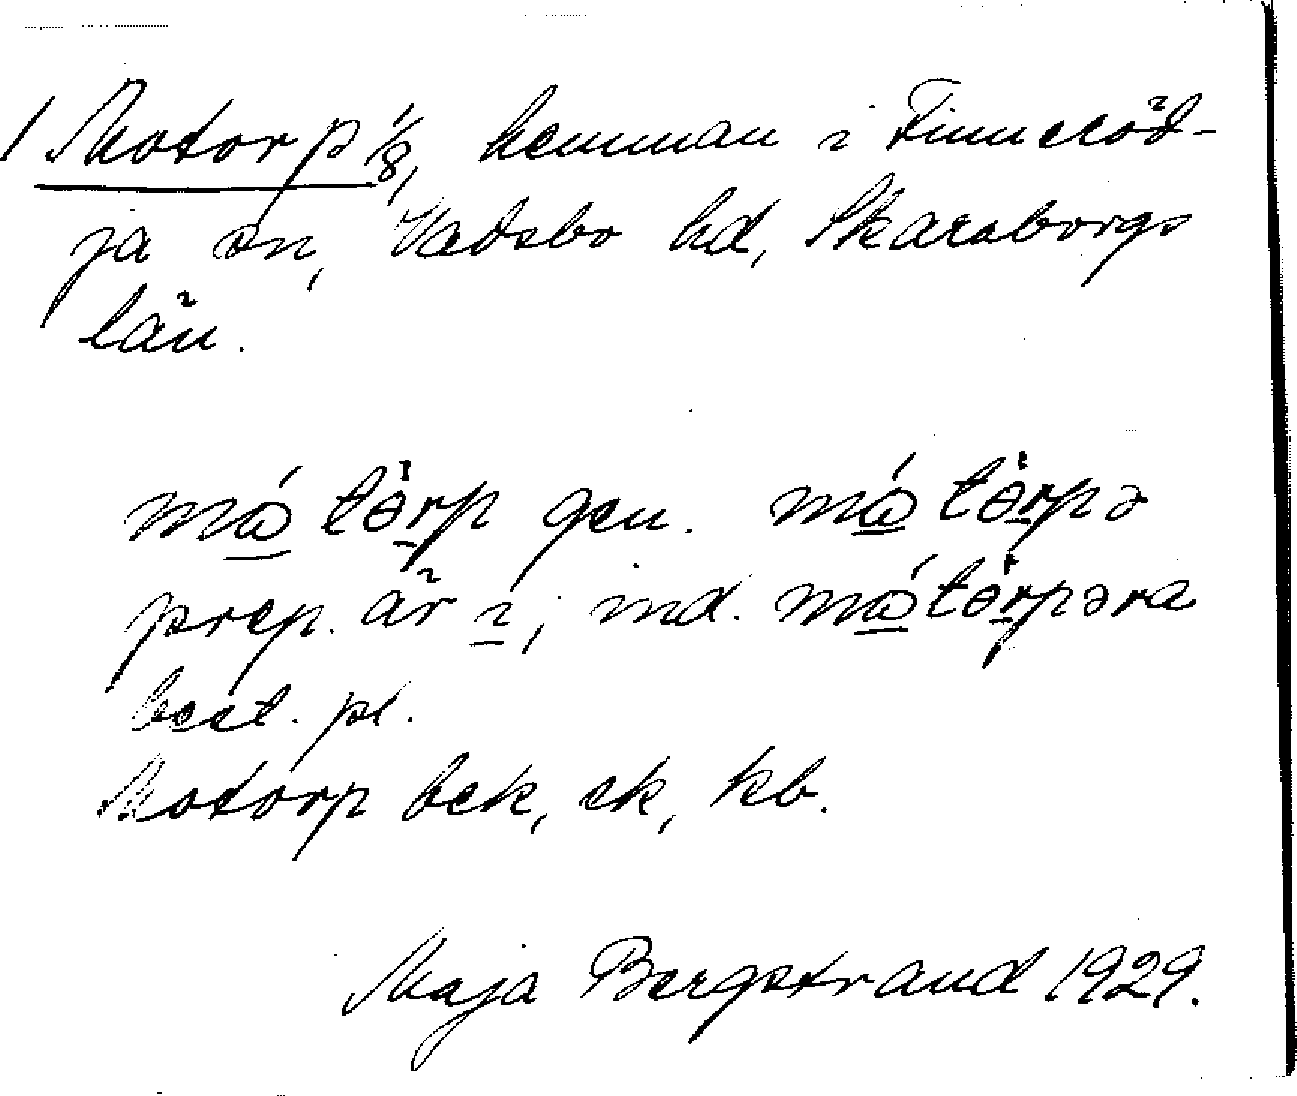 1 Motorp 1/8, hemman i Finneröd-
ja sn, Vadsbo hd, Skaraborgs
län.
má tərp gen. má tərpə
prep. är i; ind. má tərpəra
best. pl.
Motorp bek, ek, kb.
Maja Bergstrand 1929.